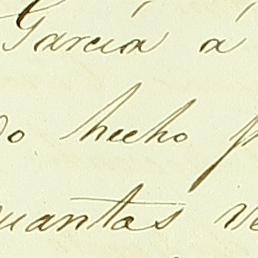 Garcia á
do hecho p
uantas ve